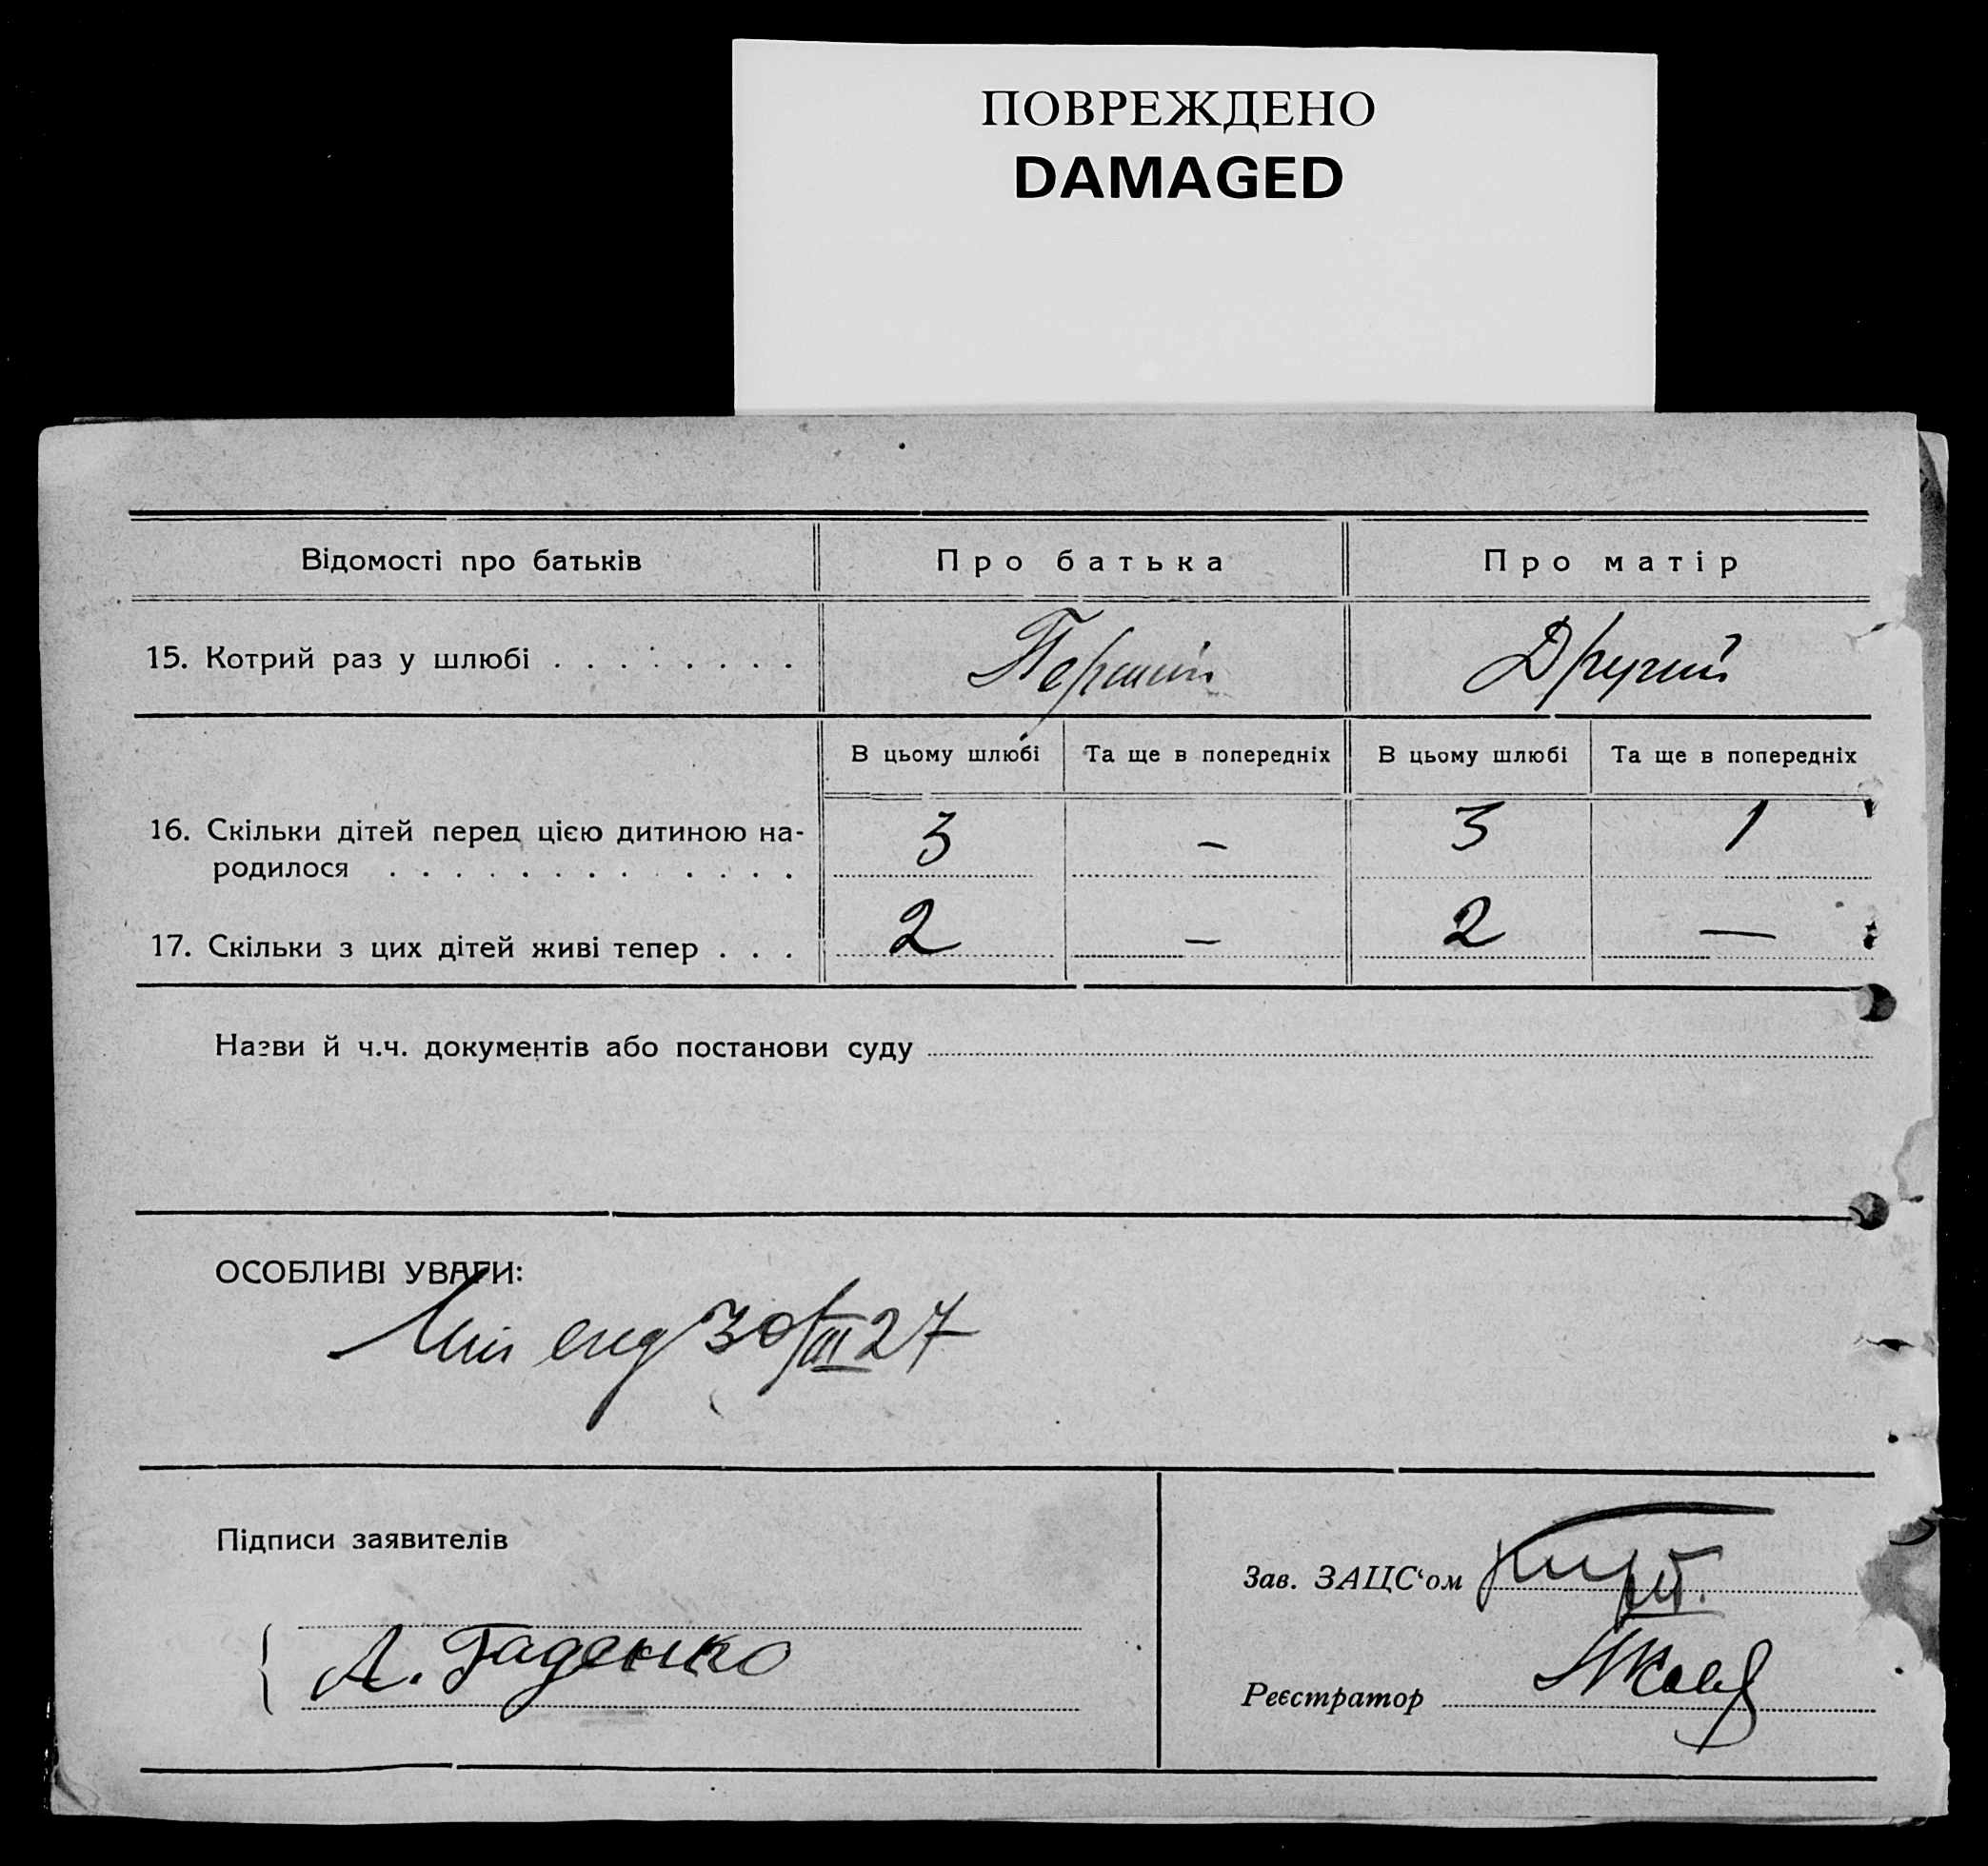 ПОВРЕЖДЕНО
DAMAGED
Відомості про батьків Про батька Про матір
15. Котрий раз у шлюбі . . . . . . . . Перший Другий
В цьому шлюбі Та ще в попередніх В цьому шлюбі Та ще в попередніх
16. Скільки дітей перед цією дитиною на-
родилося . . . . . . . . . . . . . 3 – 3 1
17. Скільки з цих дітей живі тепер . . . 2 – 2 —
Назви й ч.ч. документів або постанови суду
ОСОБЛИВІ УВАГИ:
30/III 27
Підписи заявителів
Зав. ЗАЦС‘ом
А. Гаденко
Реєстратор